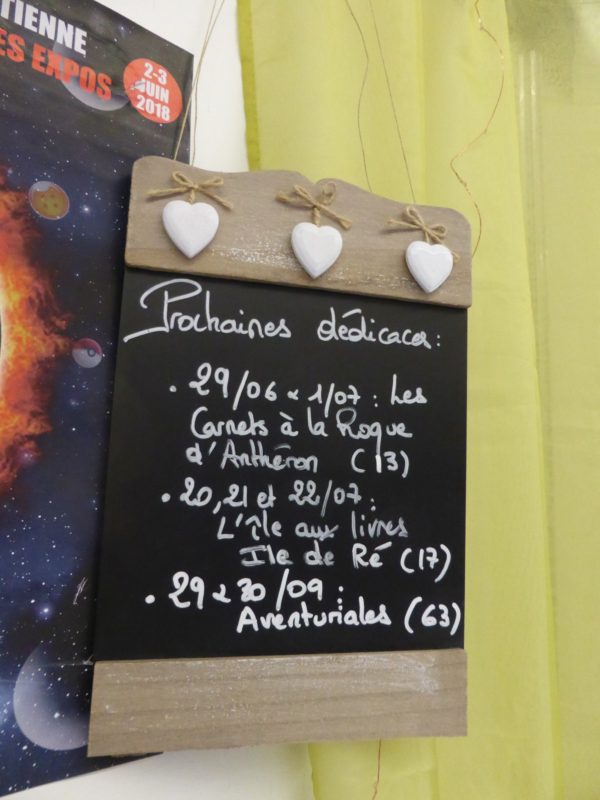 TIENNE
ES EXPOS
2-3
JUIN
2018
Prochaines dédicaces:
. 29/06 & 1/07 : Les
Carnets à la Roque
d'Anthéron (13)
. 20, 21 et 22/07 :
L'île aux livres
Ile de Ré (17)
. 29 & 30/09 :
Aventuriales (63)